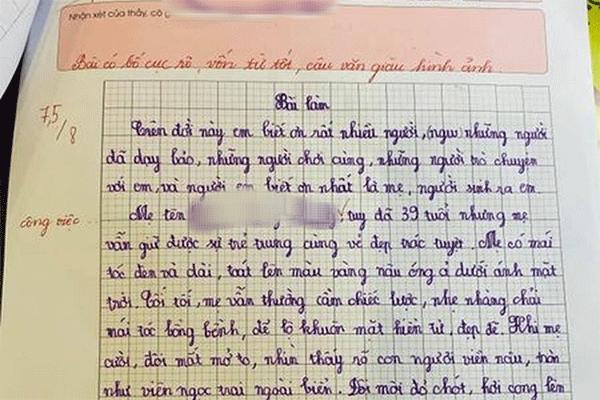 Nhận xét của thầy, cô
Bài có bố cục rõ, vốn từ tốt, câu văn giàu hình ảnh.
Bài làm
7,5/8
Trên đời này em biết ơn rất nhiều người, những người
đã dạy bảo, những người chơi cùng, những người trò chuyện
với em, và người em biết ơn nhất là mẹ, người sinh ra em.
công việc
Mẹ tên tuy đã 39 tuổi nhưng mẹ
vẫn giữ được sự trẻ trung cùng vẻ đẹp trác tuyệt. Mẹ có mái
tóc đen và dài, toát lên màu vàng nâu óng ả dưới ánh mặt
trời. Tối tối, mẹ vẫn thường cầm chiếc lược, nhẹ nhàng chải
mái tóc bồng bềnh, để lộ khuôn mặt hiền từ, đẹp đẽ. Khi mẹ
cười, đôi mắt mở to, nhìn thấy rõ con người viền nâu, tròn
như viên ngọc trai ngoài biển. Đôi môi đỏ chót, hơi cong lên